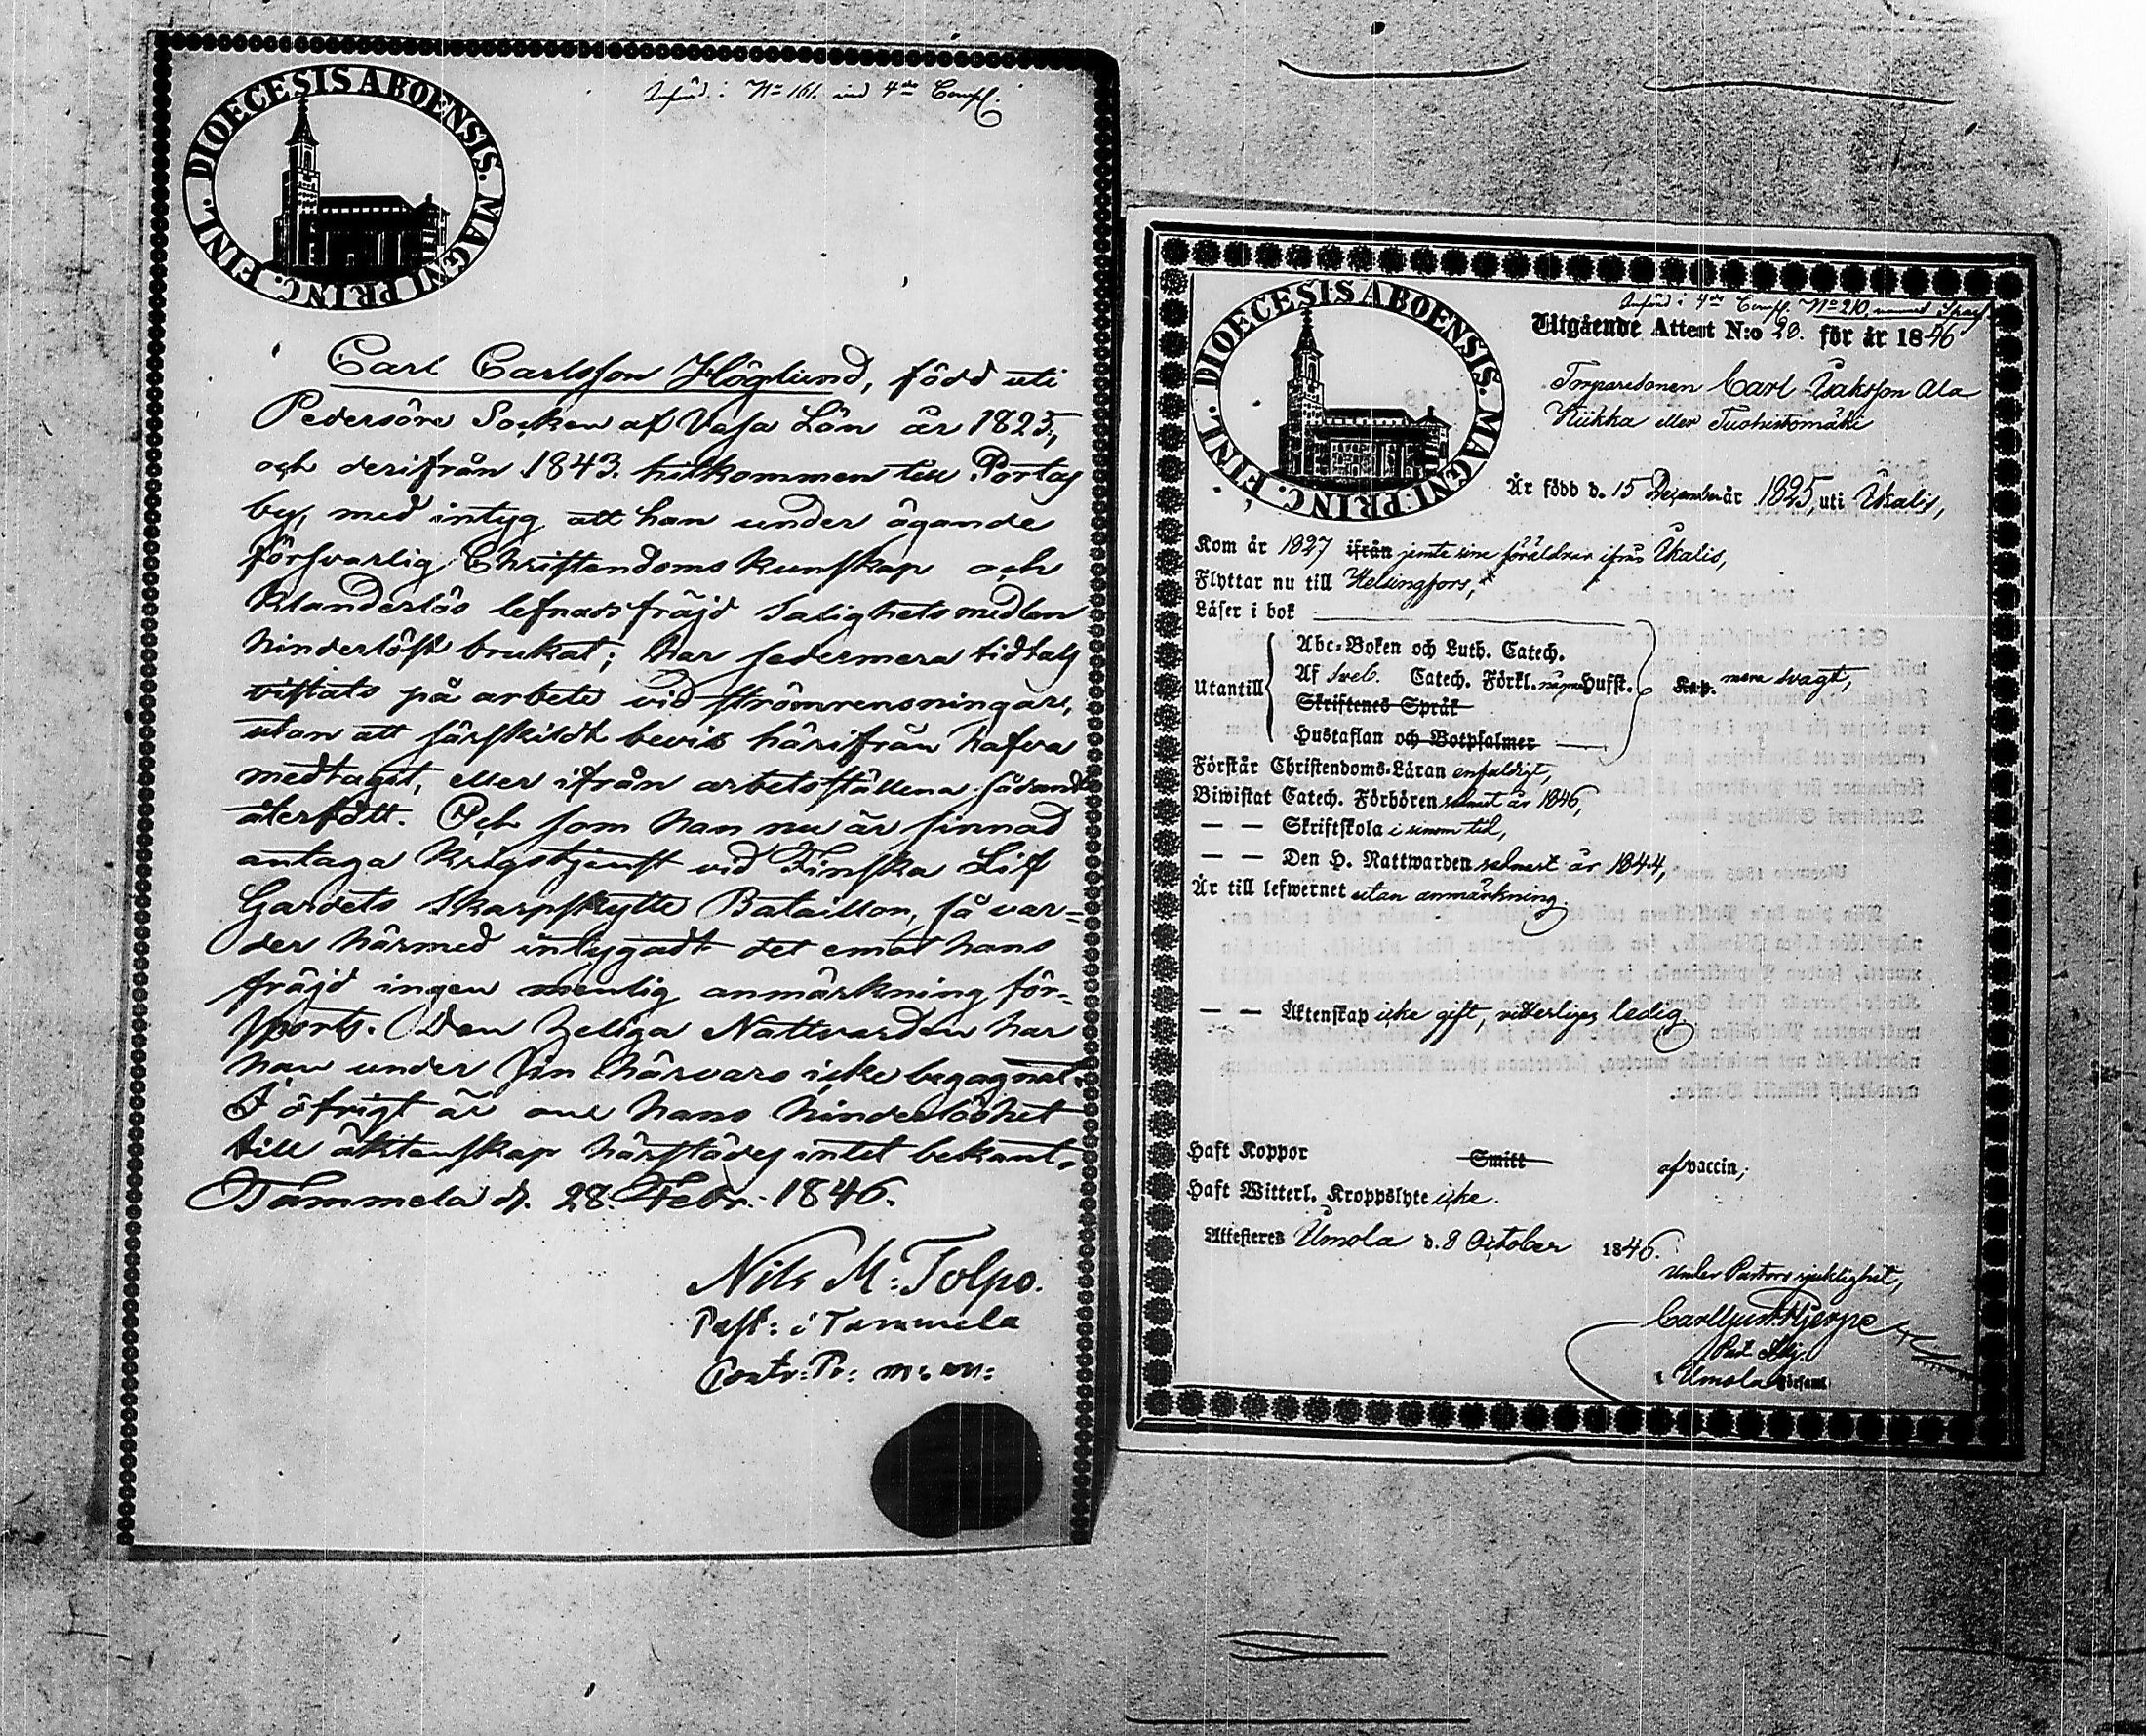 DIOECESIS ABOENSIS. MAGNI PRINC. FINL.
Införd i No 161. vid 4de Comp.
Carl Carlsson Höglund, född uti
Pedersöre Socken af Vasa Län år 1825,
och derifrån 1843. hitkommen till Portas
by, med intyg att han under ägande
försvarlig Christendoms kunskap och
klanderlös lefnads fräjd Salighetsmedlen
hinderlöst brukat; har sedermera tidtals
vistats på arbete vid strömrensningar,
utan att särskildt bevis härifrån hafva
medtagit, eller ifrån arbetsställena sådant
återfått. Och som han nu är sinnad
antaga Krigstjenst vid Finska Lif
Gardets Skarpskytte Bataillon, så var=
der härmed intygadt det emot hans
fräjd ingen menlig anmärkning för=
sports. Den heliga Nattvarden har
han under sin härvaro icke begagnat.
I öfrigt är om hans hinderlöshet
till äktenskap härstädes intet bekant.
Tammela d. 28. Febr. 1846.
Nils M. Tolpo.
Past: i Tammela
Contr: Pr: m. m:
DIOECESIS ABOENSIS. MAGNI PRINC. FINL.
Införd i 4de Comp. No 210
Utgående Attest N:o 20. för år 1846
Torparesonen Carl Isaksson Ala
Kiikka eller Tuohistomäki
Är född d. 15 December år 1825, uti Ikalis,
Kom år 1827 ifrån jemte sine föräldrar ifrån Ikalis,
Flyttar nu till Helsingfors,
Läser i bok
Utantill
Abc-Boken och Luth. Catech.
Af Sveb. Catech. Förkl. några Hufst. Kap. mera svagt,
Skriftenes Språk
Hustaflan och Botpsalmer
Förstår Christendoms-Läran enfaldigt,
Biwistat Catech. Förhören sednast år 1846,
— — Skriftskola i sinom tid,
— — Den H. Nattwarden sednast år 1844,
Är till lefwernet utan anmärkning.
— — Äktenskap icke gift, vitterligen ledig
Haft Koppor Smitt af vaccin;
Haft Witterl. Kroppslyte icke.
Attesteres Urnola d. 8 October 1846.
Under Pastors sjuklighet,
Carl
Past. Adj.
i